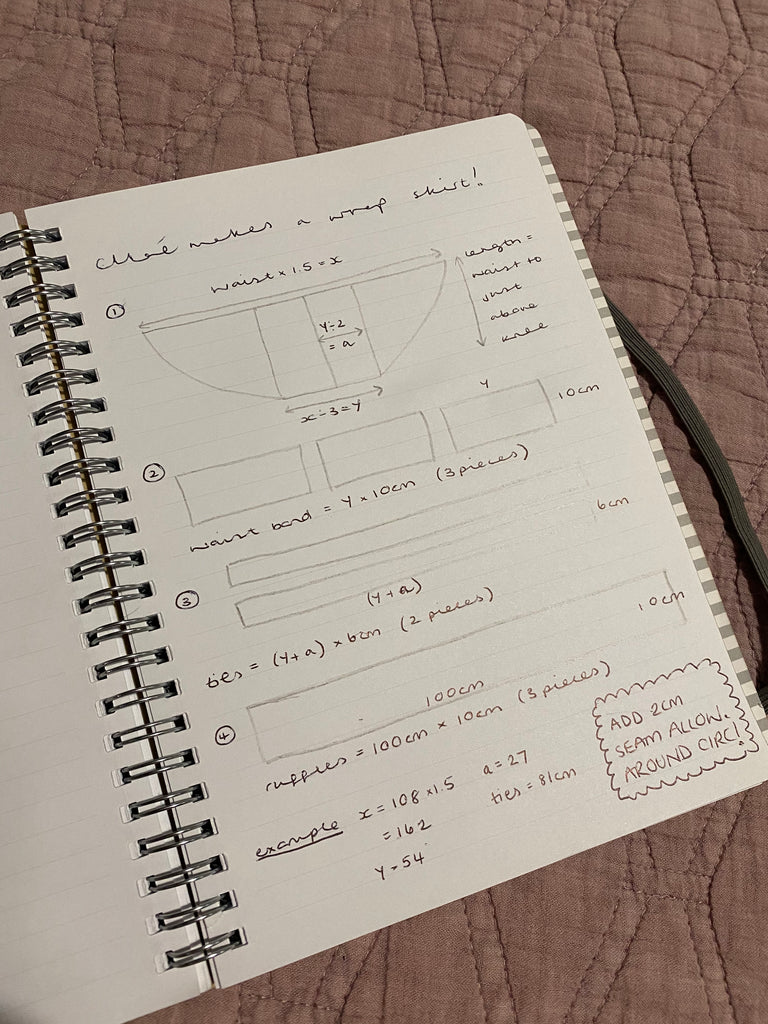 makes a wrap skirt!
waist x 1.5 = x
①
y÷2
= a
x÷3 = y
length =
waist to
just
above
knee
②
y
10cm
waist band = y x 10cm (3 pieces)
③
6cm
(y+a)
ties = (y+a) x 6cm (2 pieces)
④
10cm
100cm
ruffles = 100cm x 10cm (3 pieces)
example
x = 108 x 1.5
= 162
y = 54
a = 27
ties = 81cm
ADD 2CM
SEAM ALLOW.
AROUND CIRC!